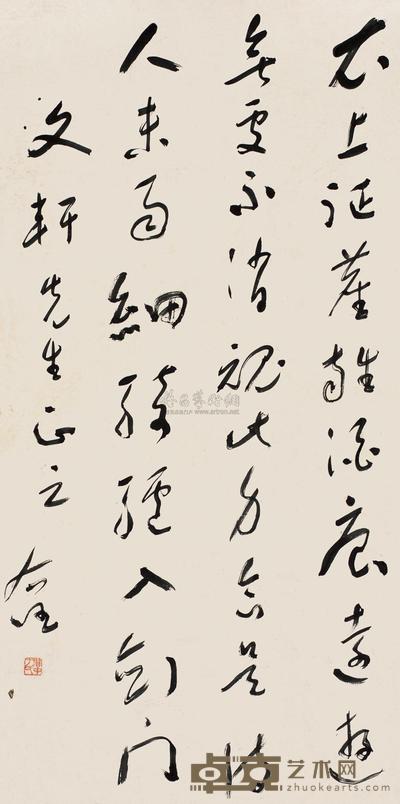 衣上征塵雜酒痕遠遊
無處不消魂此身合是詩
人未雨細騎驢入劍門
文軒先生正之
右任
卓克艺术网
zhuokearts.com